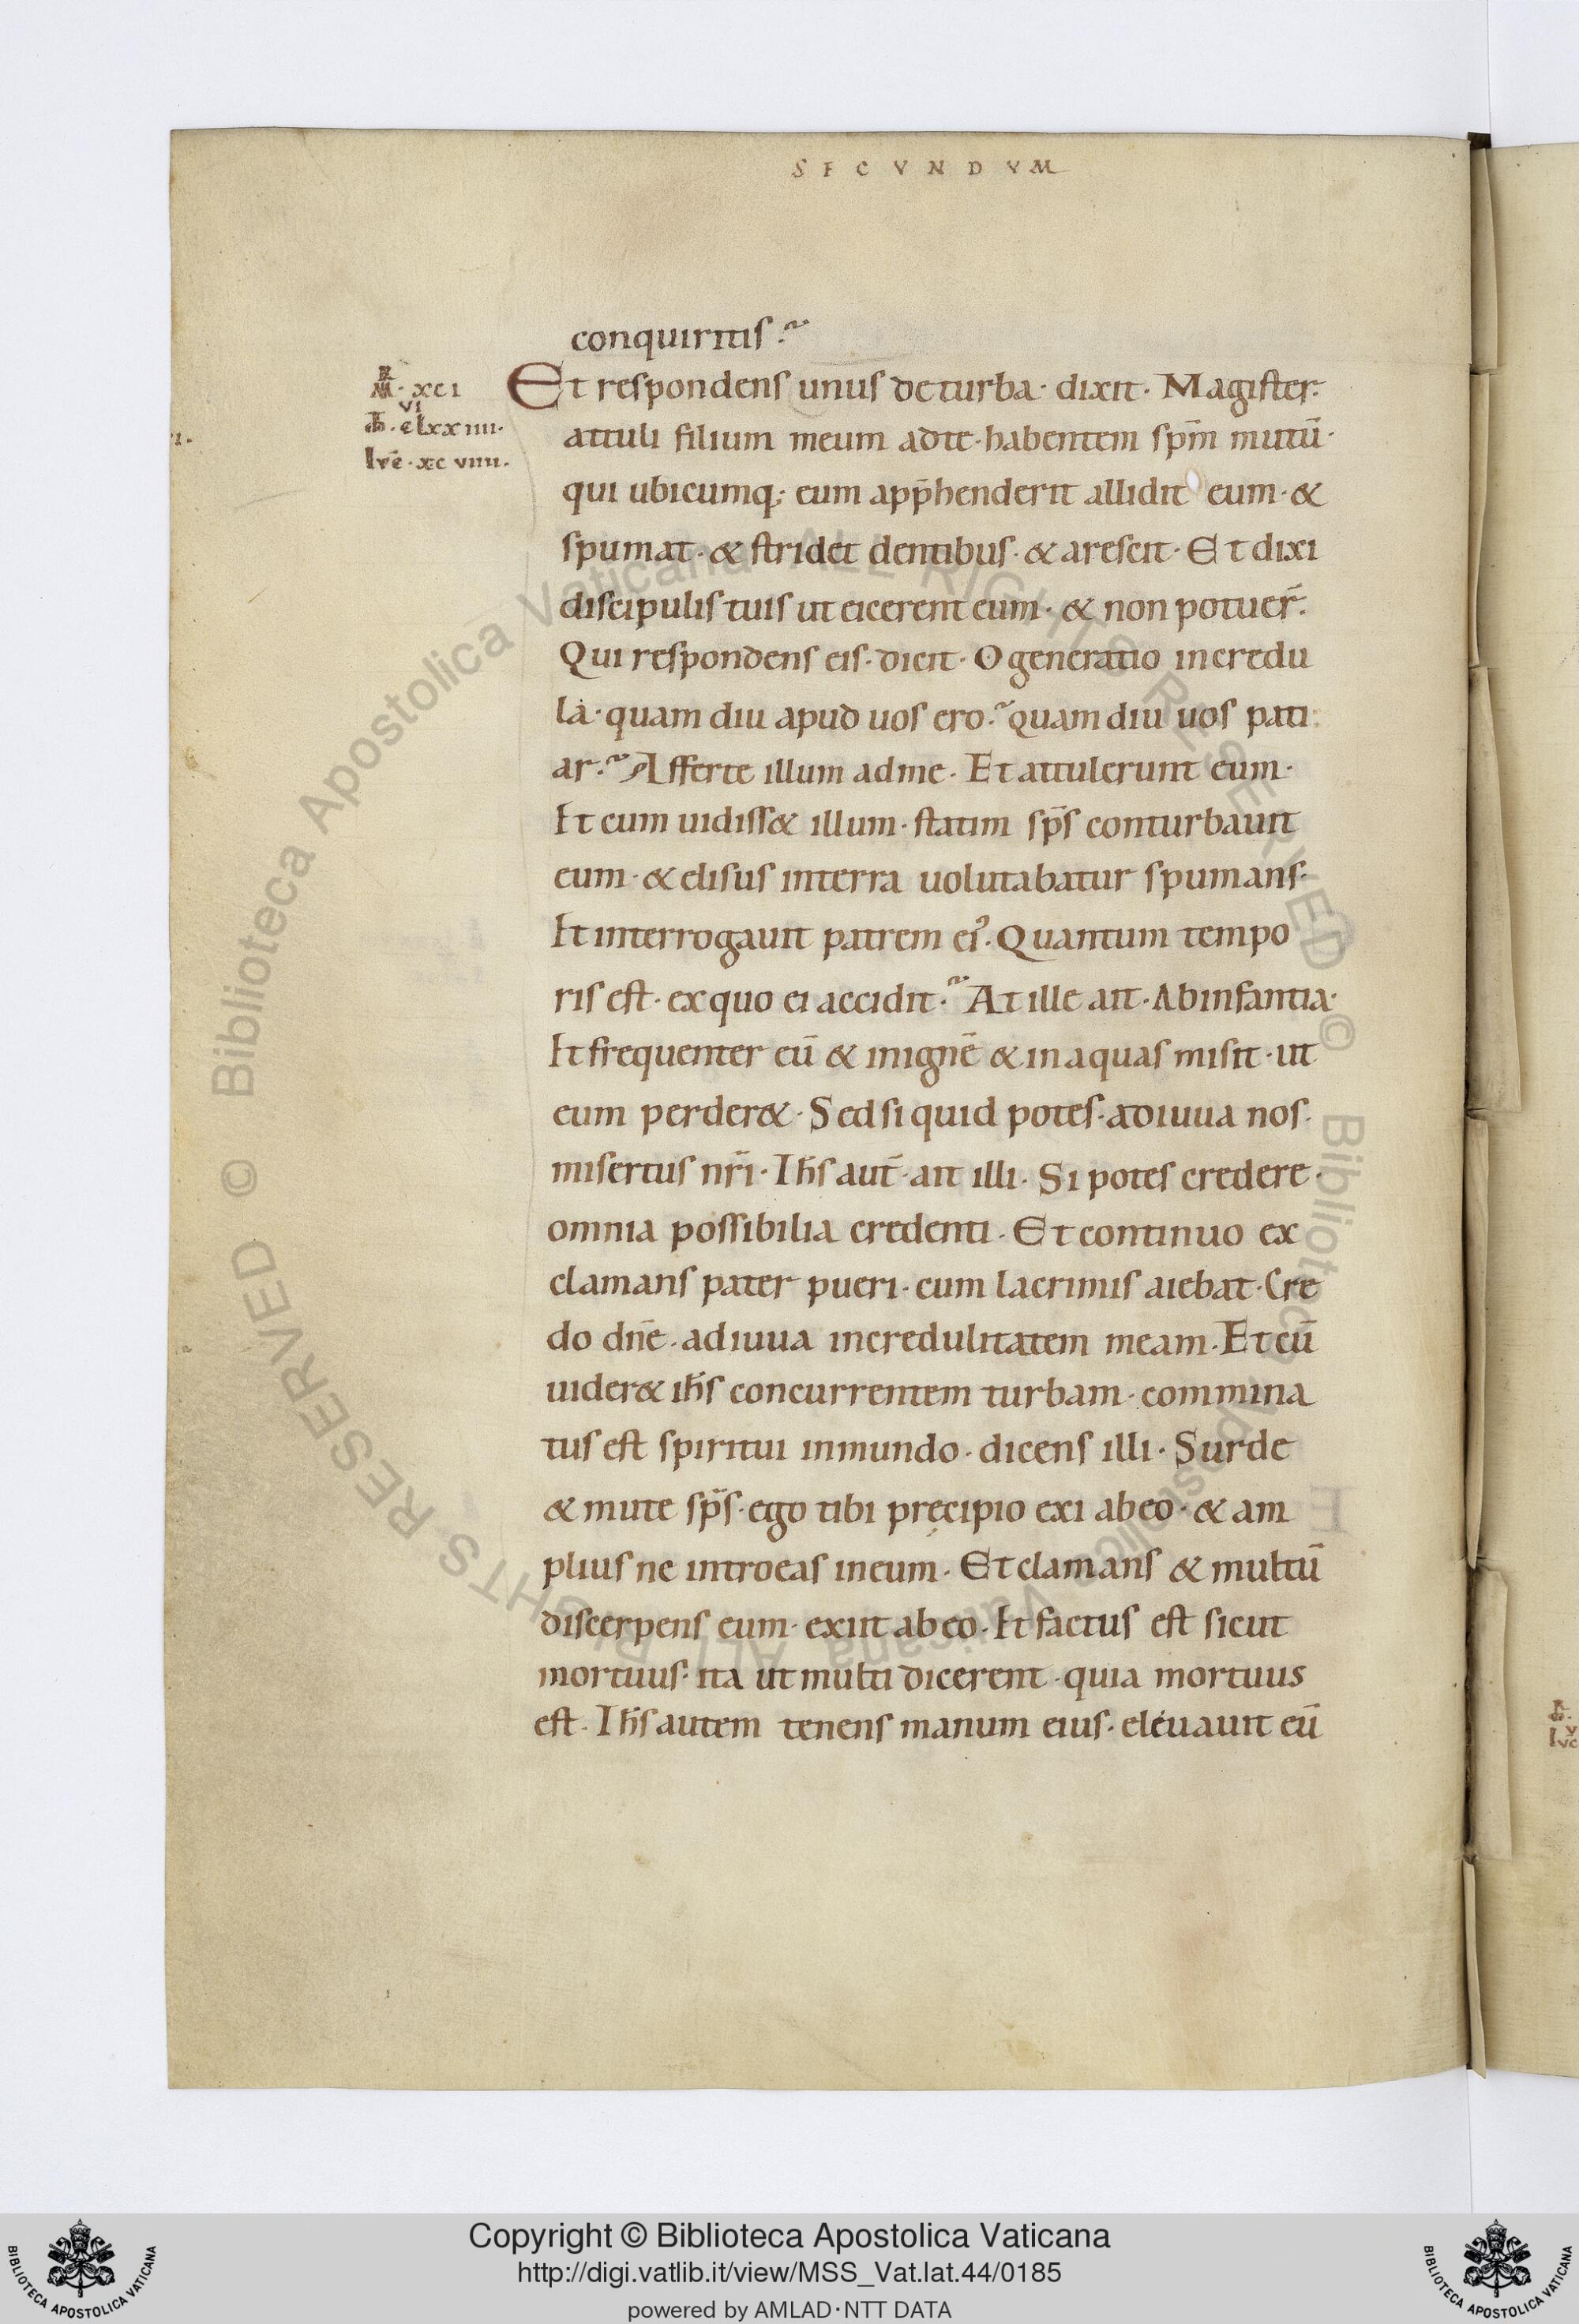 SECVNDVM
conquiritis·
MR· xci
vi
Io·clxxiiii·
lvc̄·xcviiii·
Et respondens unus deturba· dixit· Magister·
attuli filium meum adte·habentem spm̄ mutū·
qui ubicumq; eum app̄henderit allidit eum·&
spumat·& stridet dentibus·& arescit· Et dixi
discipulis tuis ut eicerent eum· & non potuer̄·
Qui respondens eis·dicit· O generatio incredu
la·quam diu apud uos ero· quam diu uos pati
ar· Afferte illum adme· Et attulerunt eum·
Et cum uidiss& illum·statim sp̄s conturbauit
eum·& elisus interra uolutabatur spumans·
Et interrogauit patrem ei᾽· Quantum tempo
ris est·exquo ei accidit· At ille ait·Abinfantia·
Et frequenter eū & inignē & inaquas misit·ut
eum perder&· Sed si quid potes·adiuua nos·
misertus nr̄i· Ih̄s aut̄·ait illi· Si potes credere·
omnia possibilia credenti· Et continuo ex
clamans pater pueri·cum lacrimis aiebat·Cre
do dn̄e·adiuua incredulitatem meam·Et cū
uider& ih̄s concurrentem turbam·commina
tus est spiritui inmundo·dicens illi· Surde
& mute sp̄s·ego tibi pręcipio exi abeo·& am
plius ne introeas ineum· Et clamans & multū
discerpens eum·exiit abeo·Et factus est sicut
mortuus·ita ut multi dicerent·quia mortuus
est· Ih̄s autem tenens manum eius·eleuauit eū
Copyright © Biblioteca Apostolica Vaticana
http://digi.vatlib.it/view/MSS_Vat.lat.44/0185
powered by AMLAD·NTT DATA
BIBLIOTECA APOSTOLICA VATICANA
BIBLIOTECA APOSTOLICA VATICANA
© Biblioteca Apostolica Vaticana ALL RIGHTS RESERVED
© Biblioteca Apostolica Vaticana ALL RIGHTS RESERVED